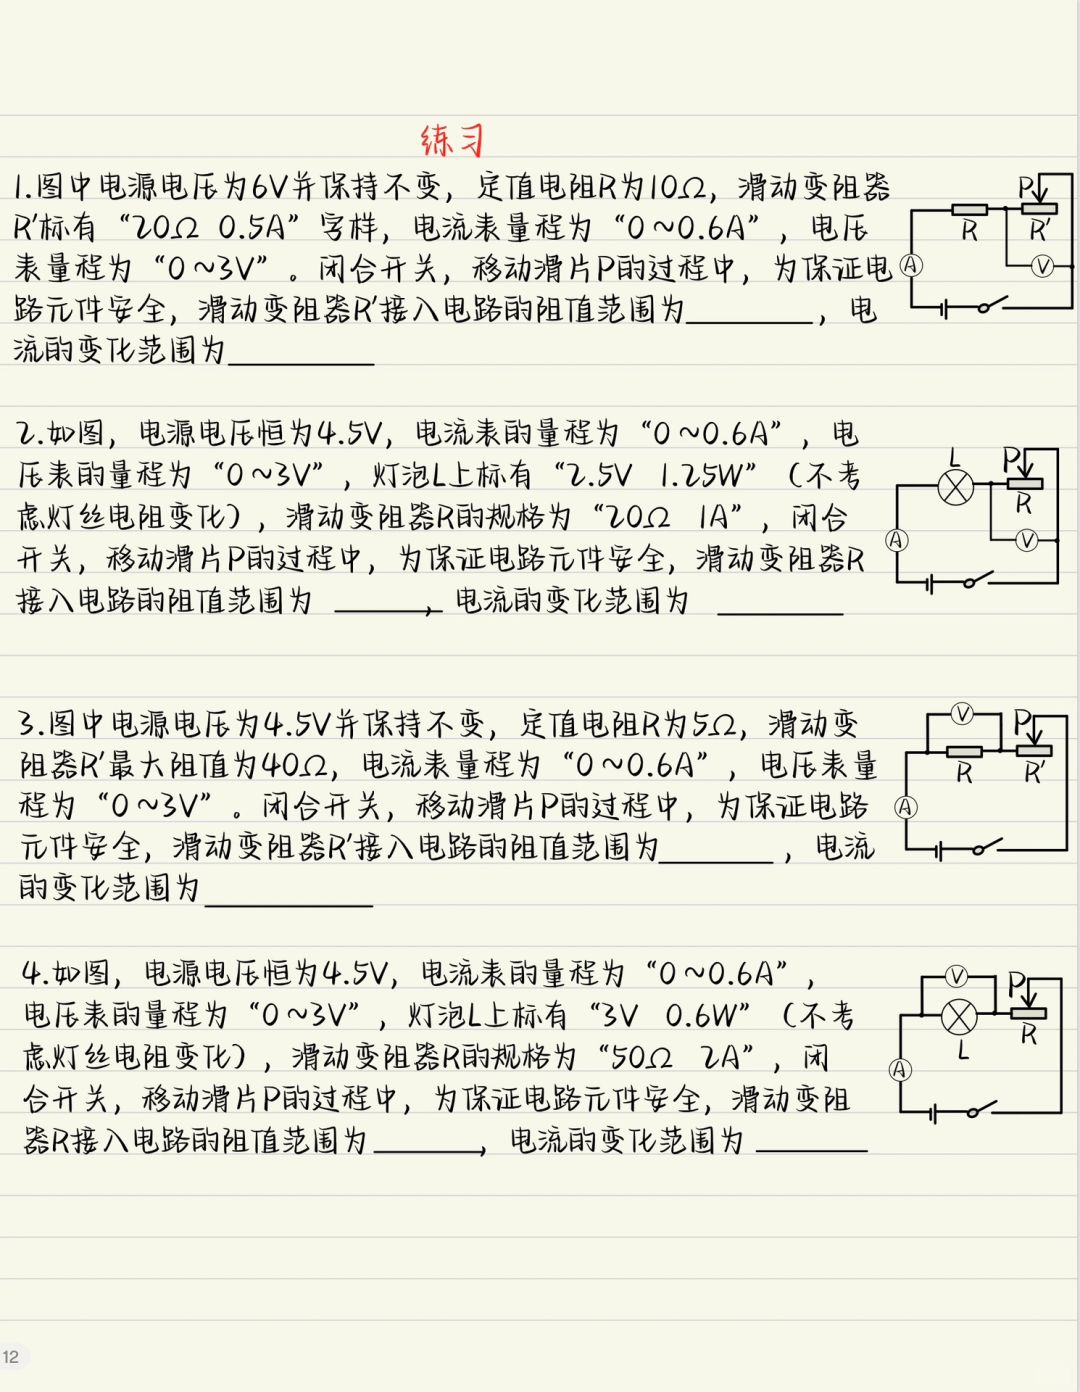 练习
1.图中电源电压为6V并保持不变，定值电阻R为10Ω，滑动变阻器
R′标有“20Ω 0.5A”字样，电流表量程为“0~0.6A”，电压
表量程为“0~3V”。闭合开关，移动滑片P的过程中，为保证电
路元件安全，滑动变阻器R′接入电路的阻值范围为________，电
流的变化范围为________
P
R
R′
A
V
2.如图，电源电压恒为4.5V，电流表的量程为“0~0.6A”，电
压表的量程为“0~3V”，灯泡L上标有“2.5V 1.25W”（不考
虑灯丝电阻变化），滑动变阻器R的规格为“20Ω 1A”，闭合
开关，移动滑片P的过程中，为保证电路元件安全，滑动变阻器R
接入电路的阻值范围为 ________，电流的变化范围为 ________
L
P
R
A
V
3.图中电源电压为4.5V并保持不变，定值电阻R为5Ω，滑动变
阻器R′最大阻值为40Ω，电流表量程为“0~0.6A”，电压表量
程为“0~3V”。闭合开关，移动滑片P的过程中，为保证电路
元件安全，滑动变阻器R′接入电路的阻值范围为________，电流
的变化范围为________
V
P
R
R′
A
4.如图，电源电压恒为4.5V，电流表的量程为“0~0.6A”，
电压表的量程为“0~3V”，灯泡L上标有“3V 0.6W”（不考
虑灯丝电阻变化），滑动变阻器R的规格为“50Ω 2A”，闭
合开关，移动滑片P的过程中，为保证电路元件安全，滑动变阻
器R接入电路的阻值范围为________，电流的变化范围为 ________
V
P
R
L
A
12